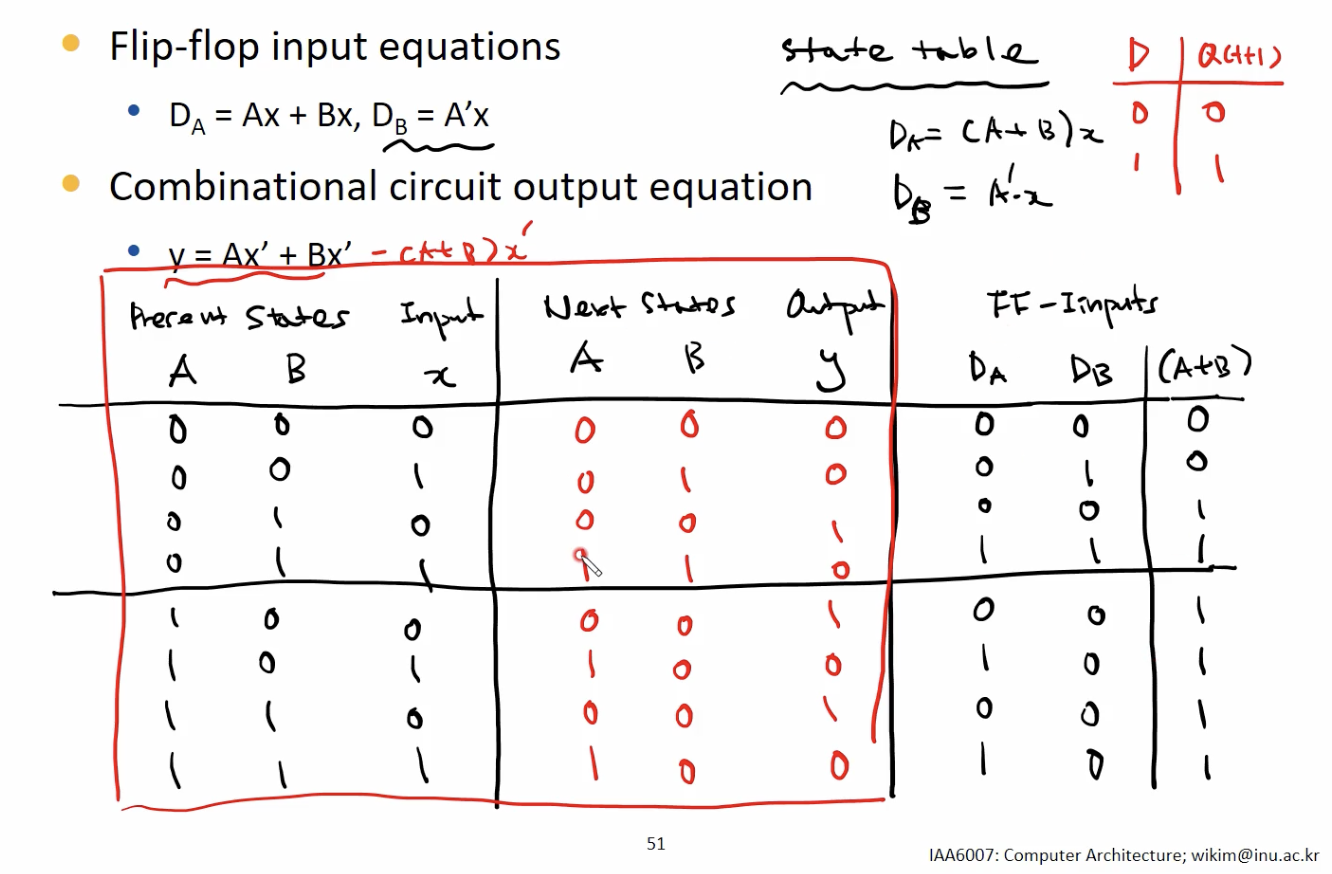 • Flip-flop input equations
• D_A = Ax + Bx, D_B = A'x
• Combinational circuit output equation
• y = Ax' + Bx' - (A+B)x'
state table
D_A = (A+B)x
D_B = A'·x
D | Q(t+1)
0 | 0
1 | 1
Present States | Input | Next States | Output | FF-Iinputs
A B x | A B y | D_A D_B | (A+B)
0 0 0 | 0 0 0 | 0 0 | 0
0 0 1 | 0 1 0 | 0 1 | 0
0 1 0 | 0 0 1 | 0 0 | 1
0 1 1 | 1 1 0 | 1 1 | 1
1 0 0 | 0 0 1 | 0 0 | 1
1 0 1 | 1 0 0 | 1 0 | 1
1 1 0 | 0 0 1 | 0 0 | 1
1 1 1 | 1 0 0 | 1 0 | 1
51
IAA6007: Computer Architecture; wikim@inu.ac.kr